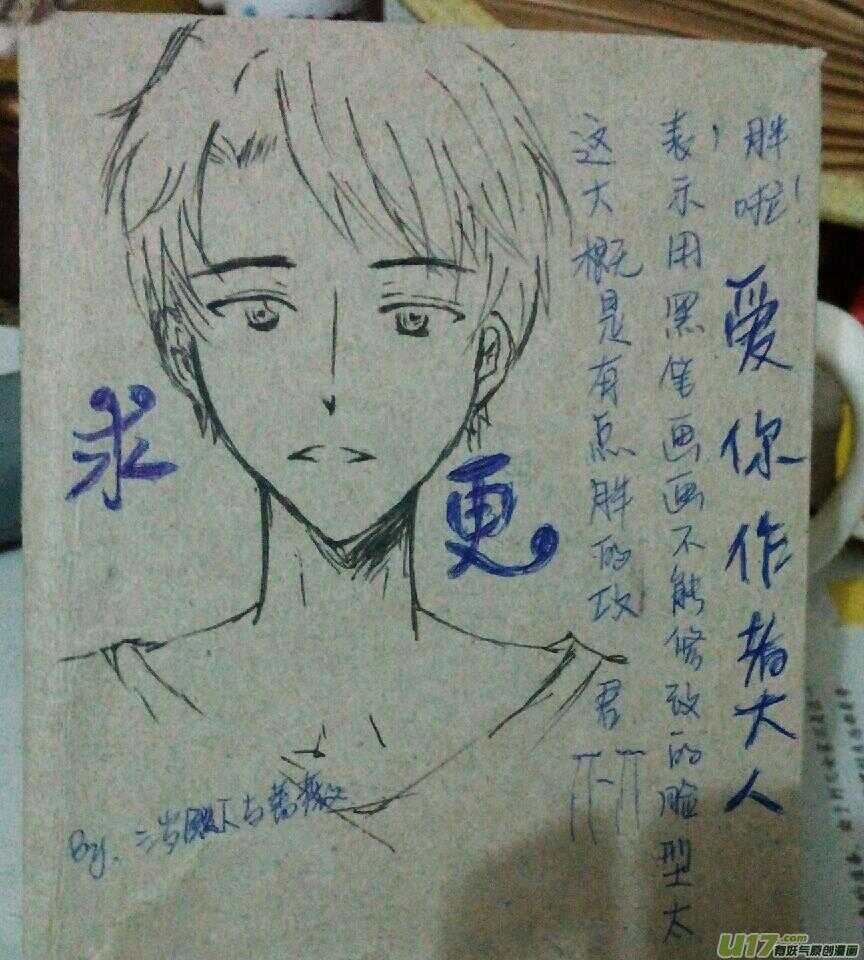 求更
这大概是有点胖的攻君 T_T
表示用黑笔画画不能修改的脸型太
胖啦！爱你作者大人
By.
U17.com
有妖气原创漫画